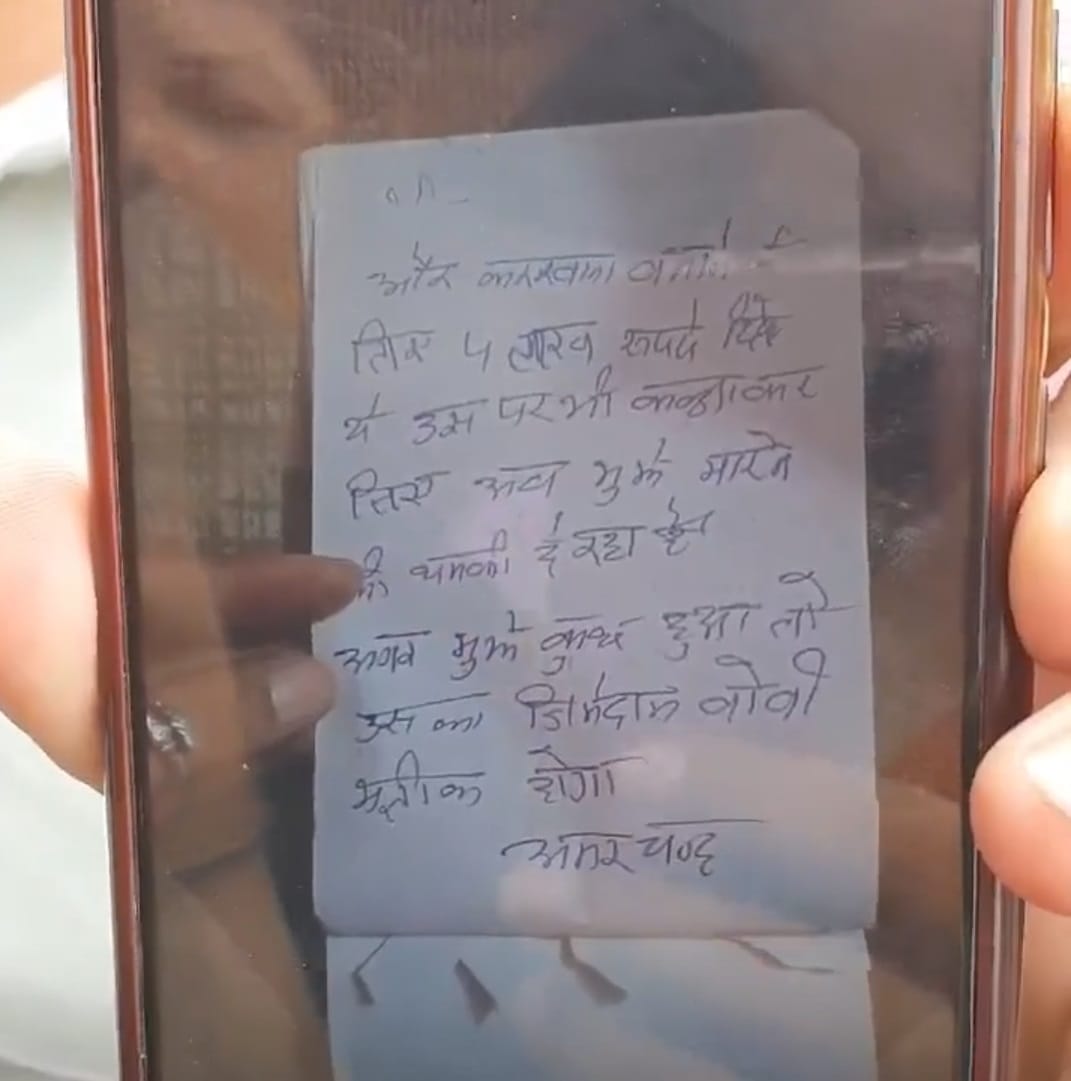 और कारखाना बनाने के
लिए 4 लाख रूपये दिये
थे उस पर भी कब्जा कर
लिए अब मुझे मारने
की धमकी दे रहा है
अगर मुझे कुछ हुआ तो
उस का जिमेदार बोबी
मलीक होगा
अमर चन्द